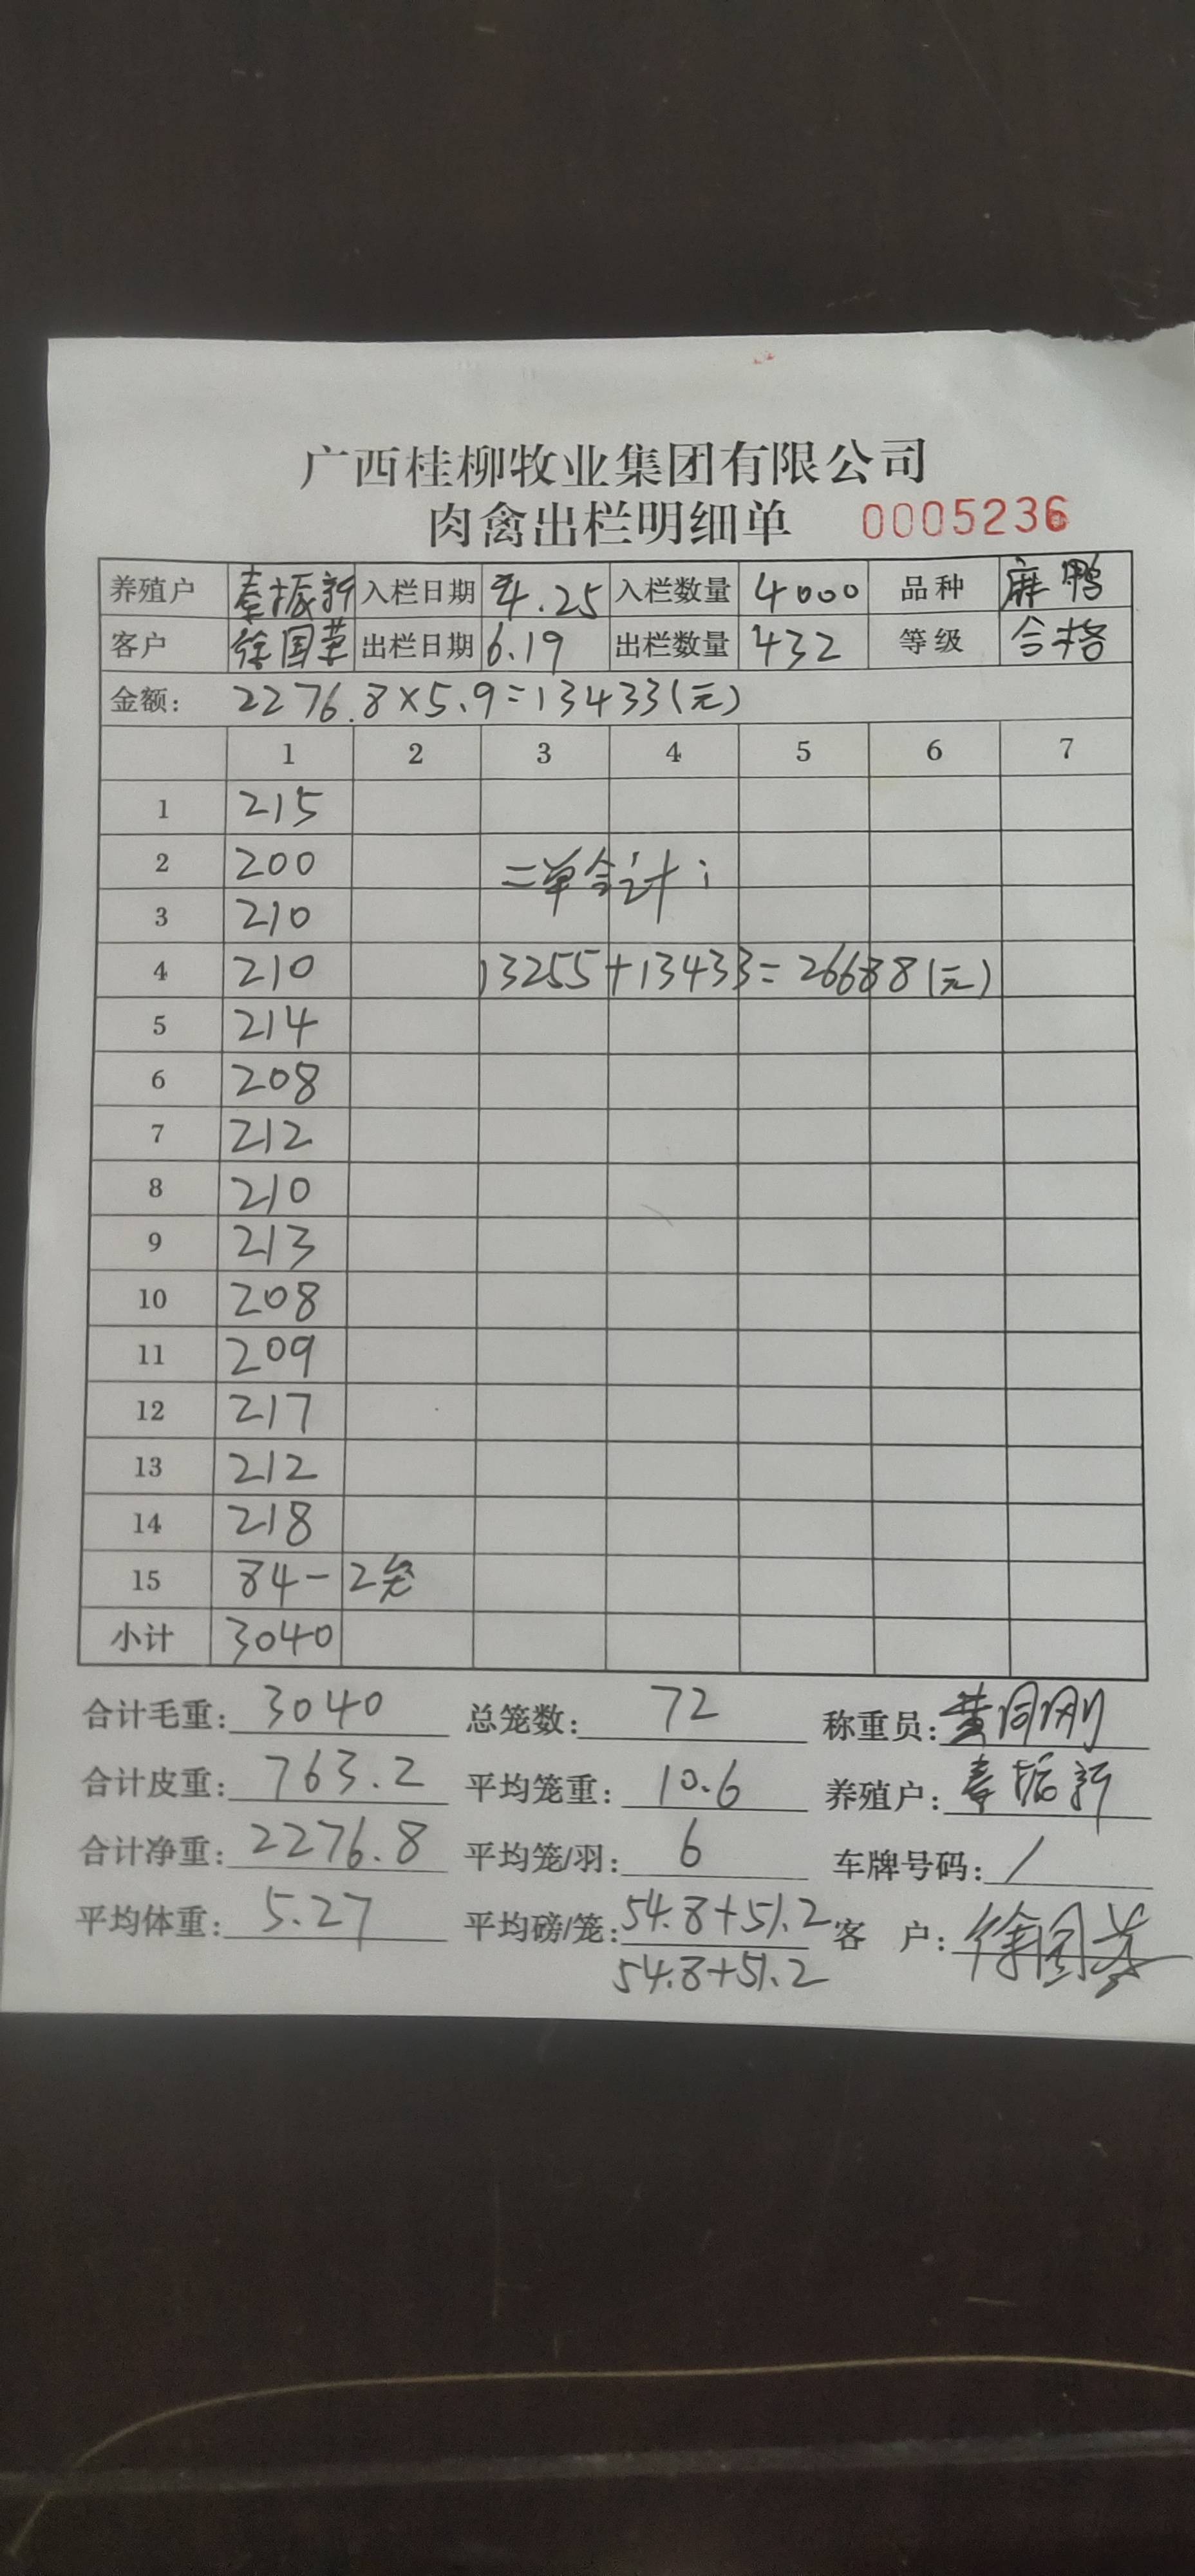 广西桂柳牧业集团有限公司
肉禽出栏明细单 0005236
养殖户 秦振新 入栏日期 4.25 入栏数量 4000 品种 麻鸭
客户 徐国荣 出栏日期 6.19 出栏数量 432 等级 合格
金额: 2276.8×5.9=13433(元)
1 2 3 4 5 6 7
1 215
2 200 二单合计:
3 210
4 210 13255+13433=26688(元)
5 214
6 208
7 212
8 210
9 213
10 208
11 209
12 217
13 212
14 218
15 84-2笼
小计 3040
合计毛重: 3040 总笼数: 72 称重员: 黄同刚
合计皮重: 763.2 平均笼重: 10.6 养殖户: 秦振新
合计净重: 2276.8 平均笼/羽: 6 车牌号码: /
平均体重: 5.27 平均磅/笼: 54.8+51.2 客 户: 徐国荣
54.8+51.2